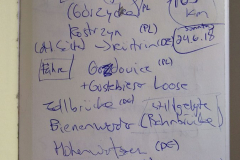 (Górzyca) PL
km
Kostrzyn (PL)
(Altstadt) → Küstrin (DE)
24.6.18
Fähre Gozdowice (PL)
+ Güstebieser Loose
Zollbrücke (DE)
Bienenwerder (Bahnbrücke)
Hohenwutzen (DE)